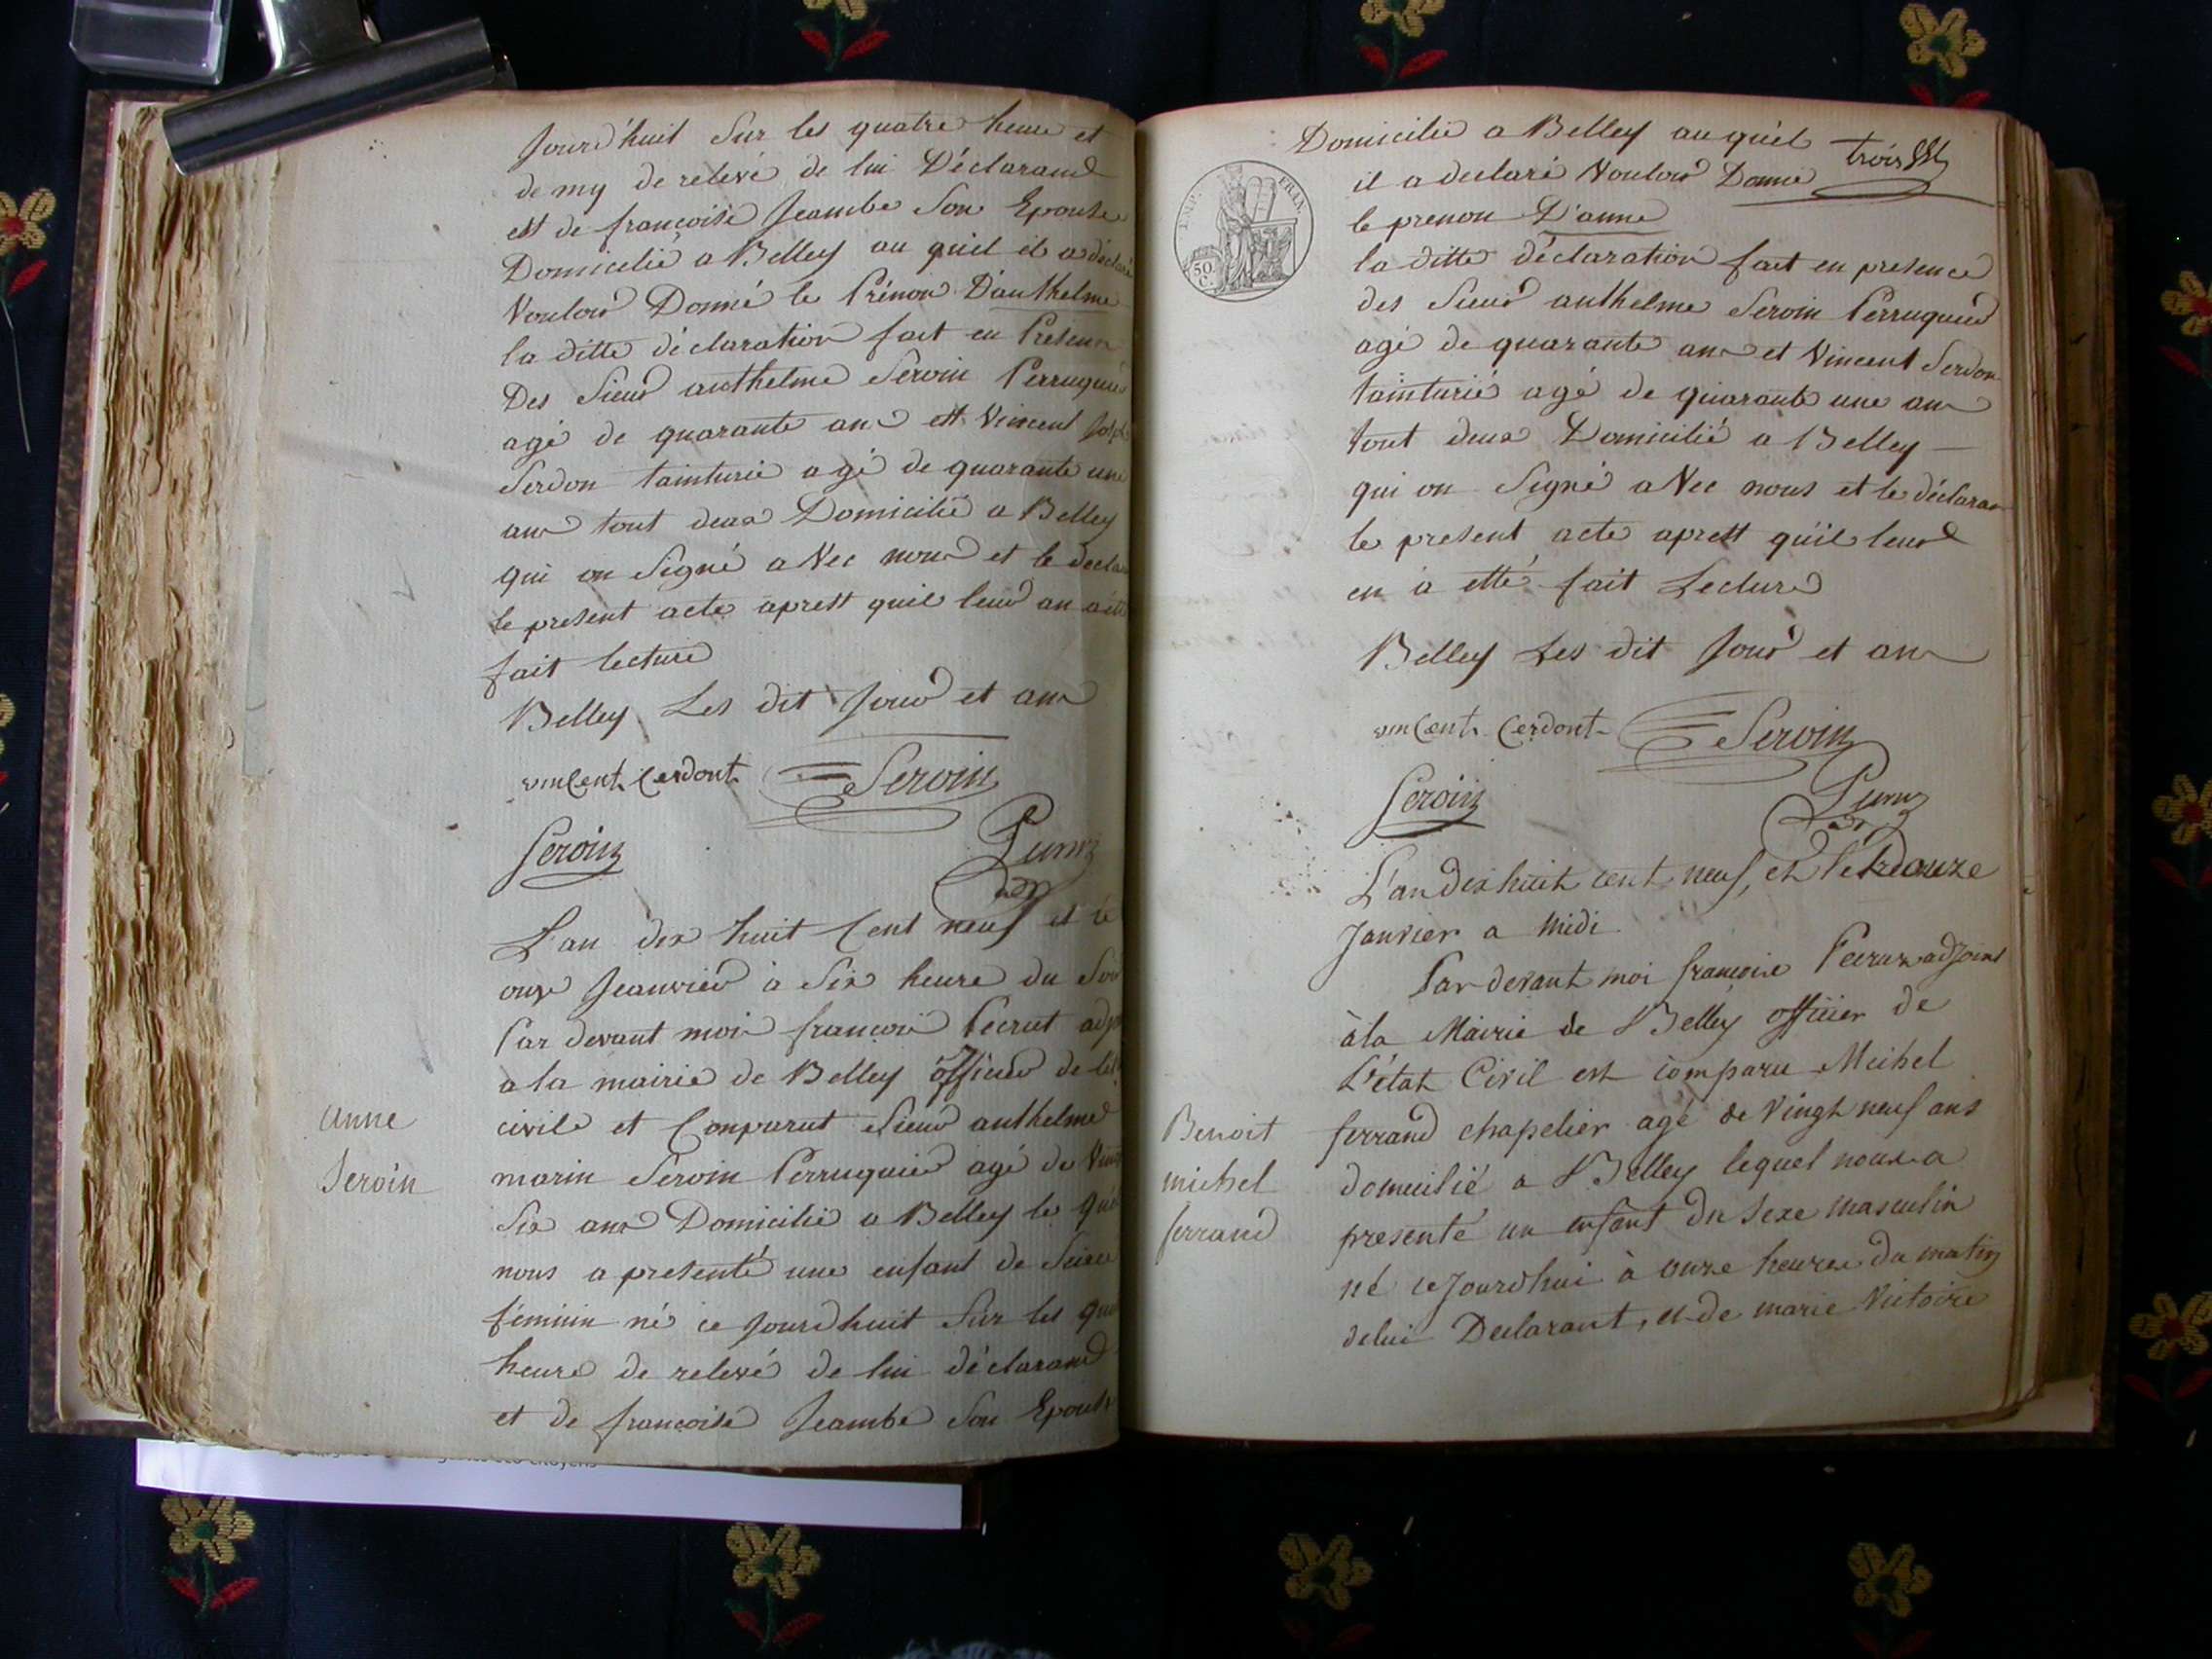 Jourd'huit Sur les quatre heure et
de my de relevé de lui Déclarand
est de françoise Jeambe Son Epouse
Domicilié a Belley au quil il a déclaré
Vouloir Donné le Prénon D'anthelme
la ditte déclaration fait en Présence
Des Sieur anthelme Seroin Perruquié
agé de quarante ans ett Vincent
Serdon tainturié agé de quarante une
ans tout deux Domicilié a Belley
qui on Signé aVec nous et le decla
le present acte aprest quil leur an a été
fait lecture
Belley Les dit Jour et an
vincent cerdont Seroin
Seroin
L'an dix huit Cent neuf et le
onze Jeanvier à Six heure du Soir
Par devant moi françoi Pécrut adj
a la mairie de Belley officier de l'ét
civile et Conparut Sieur anthelme
anne
Seroin
marin Seroin Perruquié agé de Vint
Six ans Domicilié a Belley le quel
nous a presenté une enfant de Seixe
féminin né ce Jourdhuit Sur les quatre
heure de relevé de lui déclarand
et de françoise Jeambe Son Epouse
Domicilié a Belley au quél
trois
il a declaré Vouloir Donné
le prenon D'anne
IMP. FRAN.
50 C.
la ditte déclaration fait en presence
des Sieur anthelme Seroin Perruquié
agé de quarante ans et Vincent Serdon
tainturié agé de quarante une an
tout deux Domicilié a Belley
qui on Signé aVec nous et le déclaran
le present acte aprest qu'il leur
en à etté fait Lecture
Belley Les dit Jour et an
vincent cerdont Seroin
Seroin
L'an dix huit cent neuf, et le douze
Janvier a Midi
Par devant moi françoise Pecrux adjoint
à la Mairie de Belley officier de
L'état Civil est comparu Michel
Benoit
michel
ferrand
ferrand chapelier agé de Vingt neuf ans
domicilié a Belley lequel nous a
presenté un enfant du Sexe masculin
né ce Jourdhui à onze heures du matin
delui Declarant, et de marie Victoire